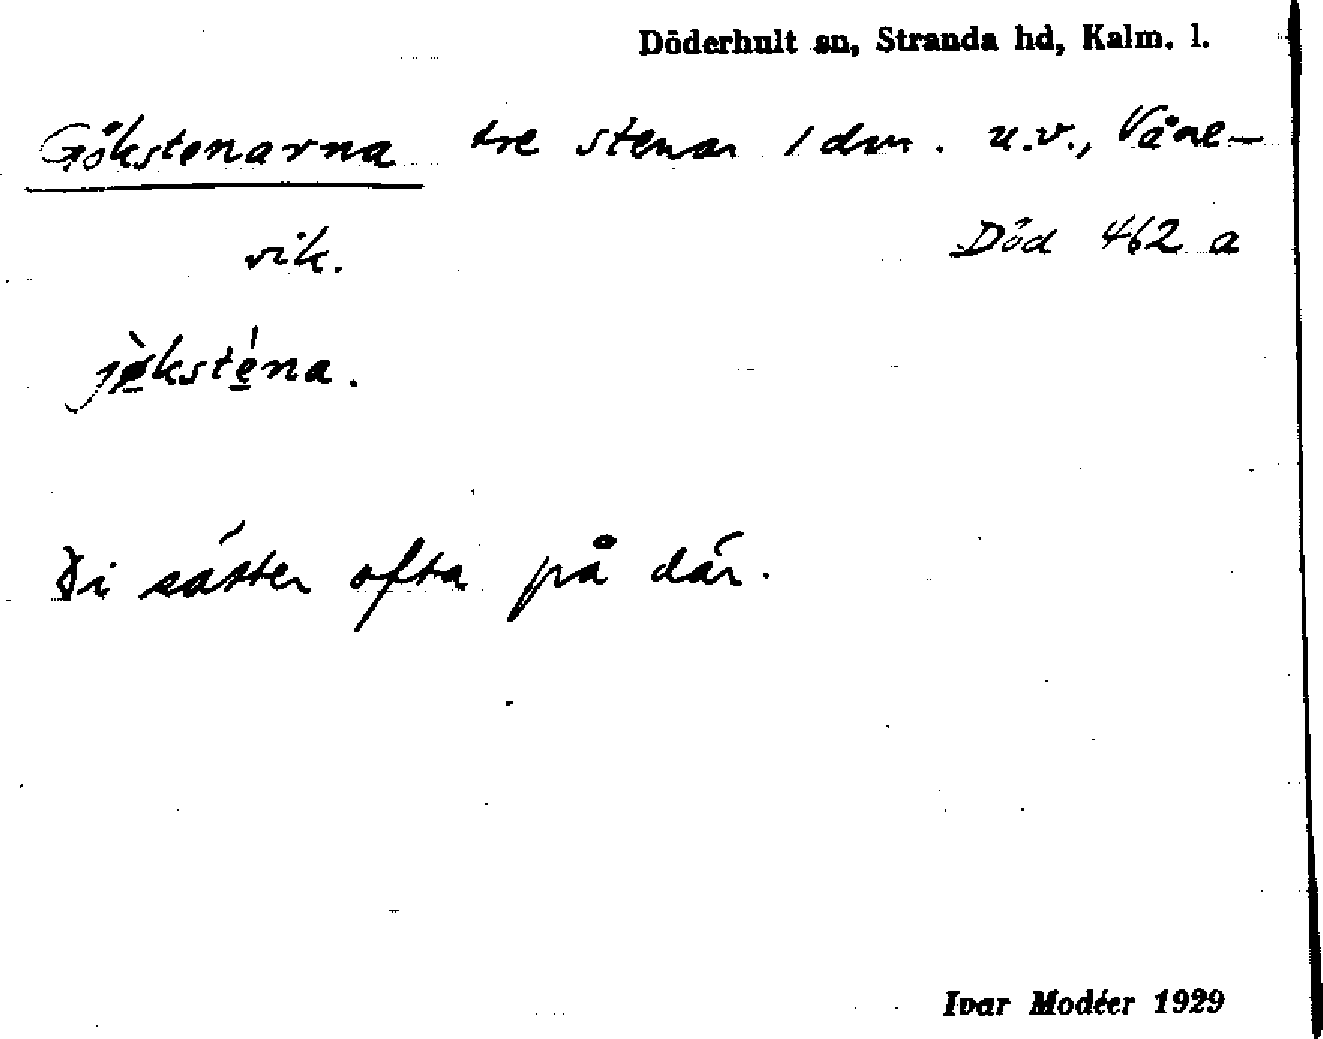 Döderhult sn, Stranda hd, Kalm. l.
Gökstenarna tre stenar 1 dm. u.v., Våne-
vik.
Död 462 a
jø̀ksténa.
Vi sätter ofta på där.
Ivar Modéer 1929